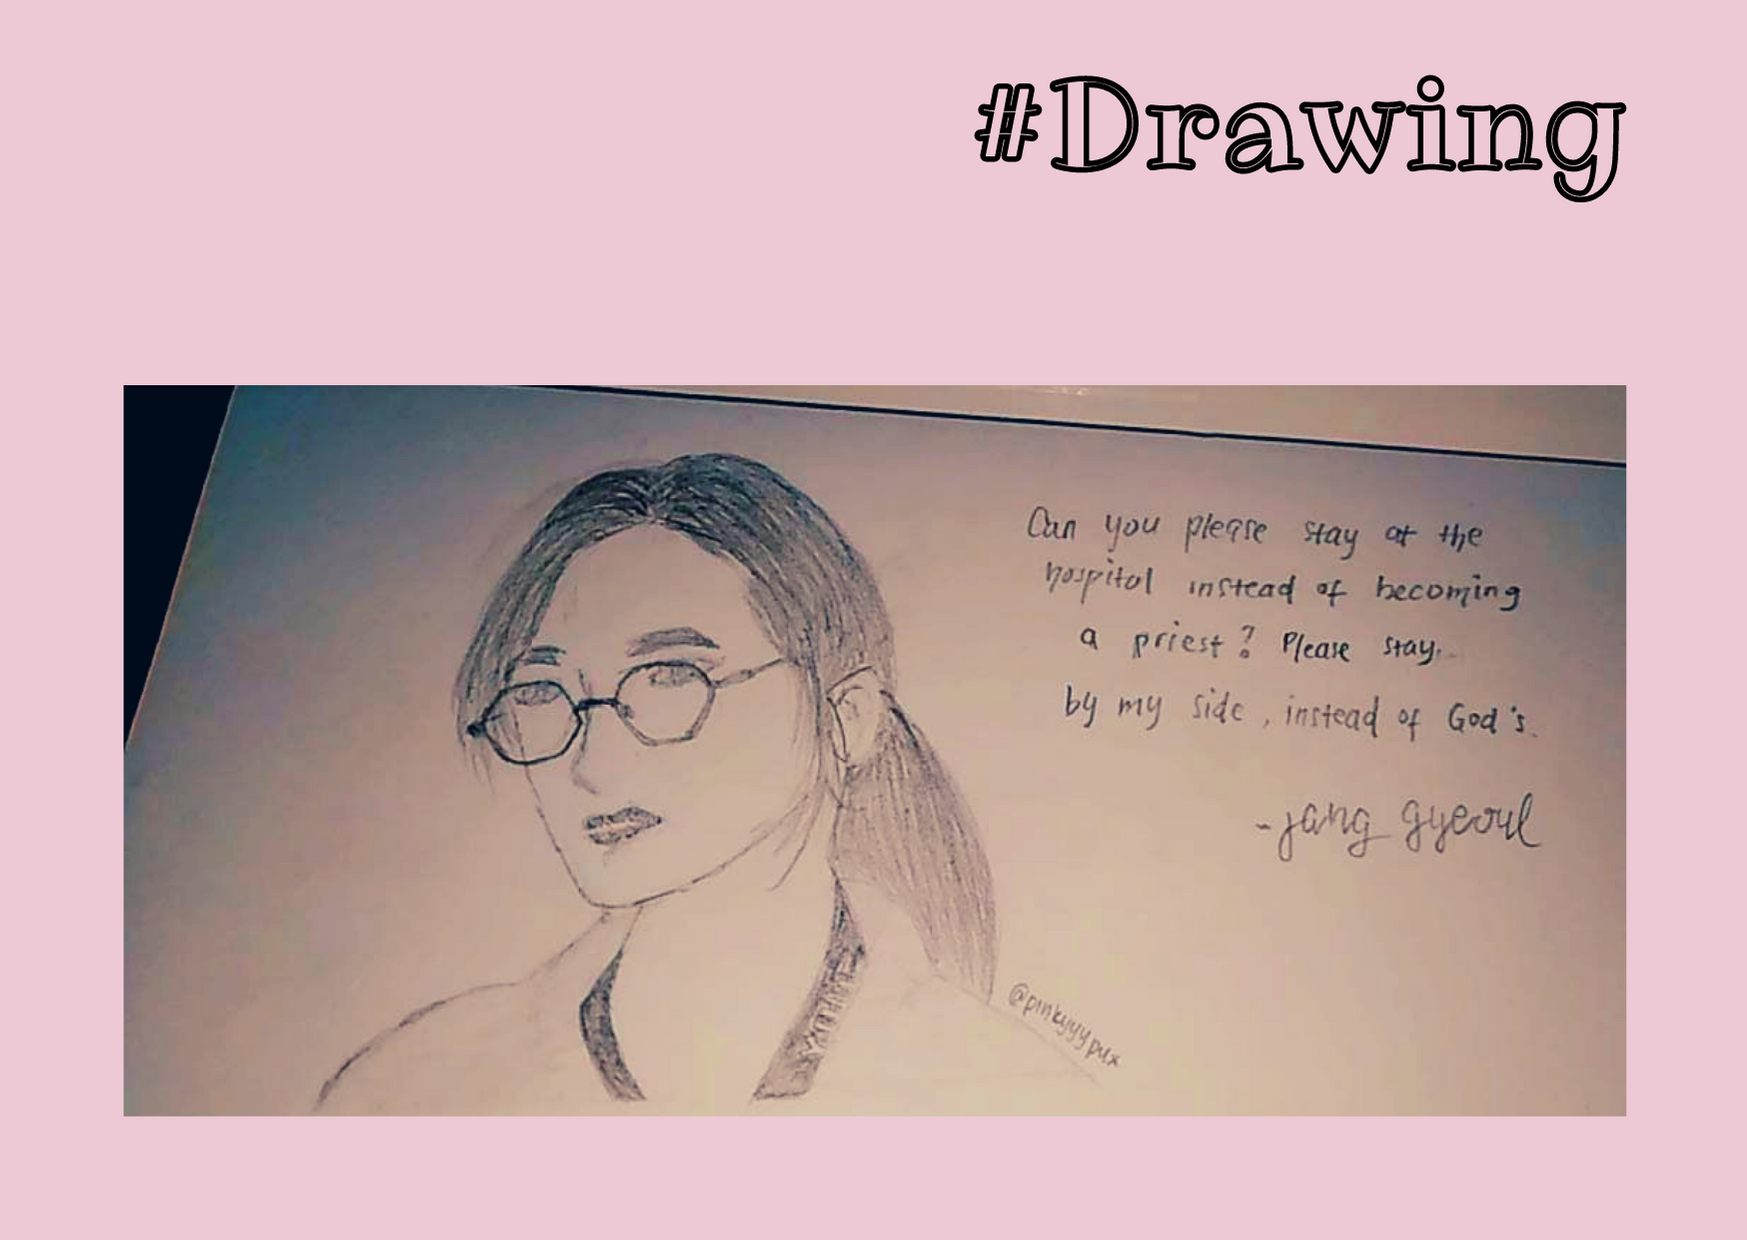 #Drawing
Can you please stay at the
hospital instead of becoming
a priest? Please stay.
by my side, instead of God's.
-jang gyeoul
@pinkyyypux